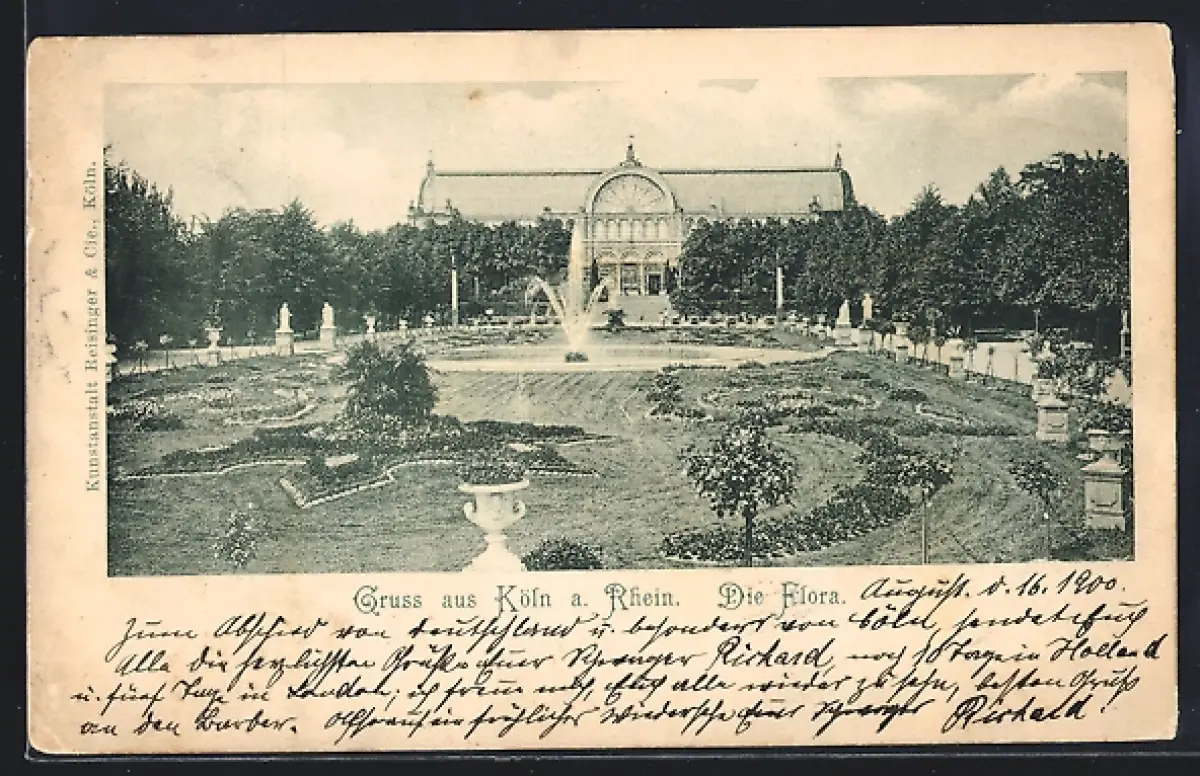 Kunstanstalt Reisinger & Cie., Köln.
Gruss aus Köln a. Rhein. Die Flora.
August. d. 16. 1900.
Zum Abschied von Deutschland u. besonders von Cöln, sendet Euch
Alle die herzlichsten Grüße Euer Richard, noch 10 Tage in Holland
u. fünf Tage in London; ich freue mich, Euch alle wieder zu sehn, besten Gruß
an den Barber. Also auf ein fröhliches Wiedersehn Euer Richard!